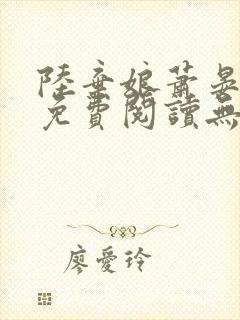 陸棄娘蕭晏
免費閱讀無
廖愛玲